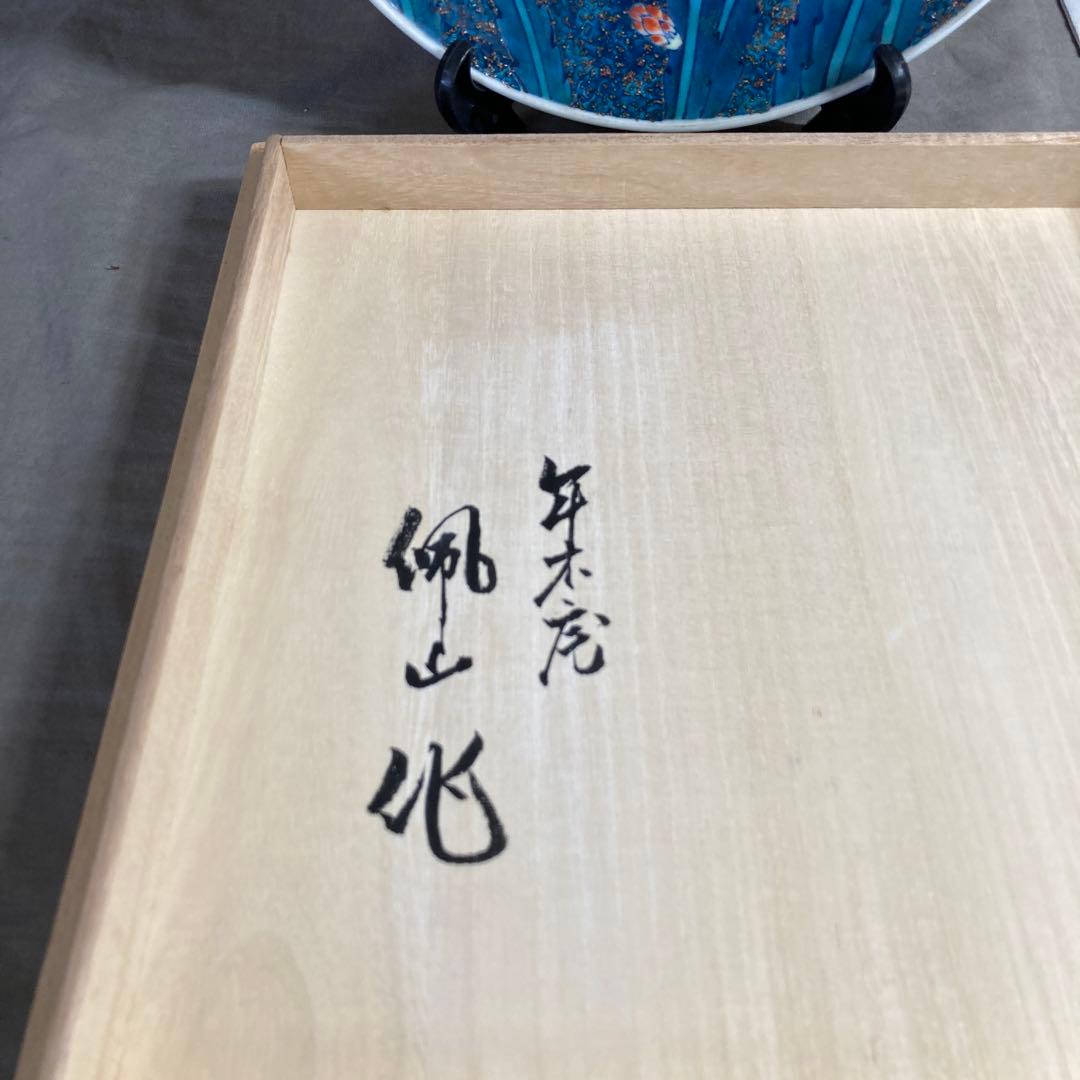 年木庵
佩山作